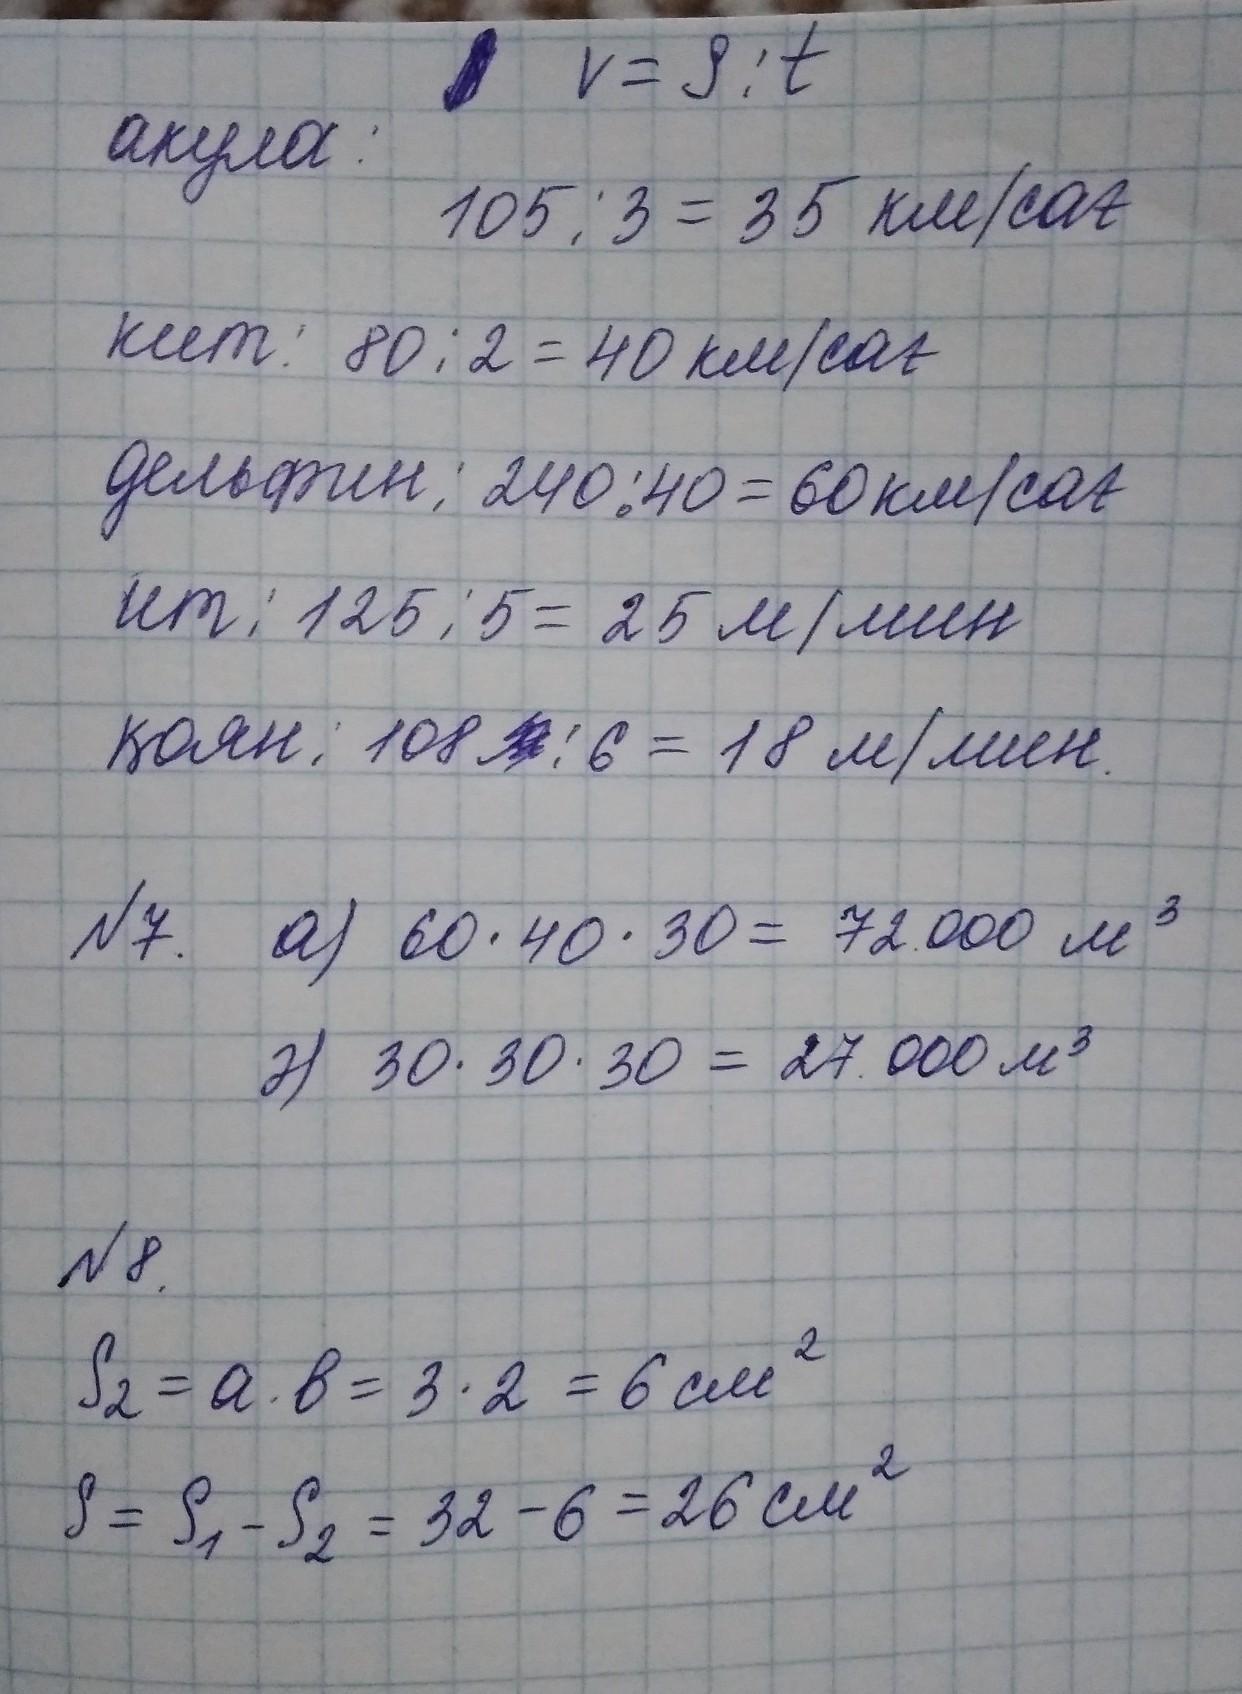 v = S : t
акула:
105 : 3 = 35 км/сағ
кит: 80 : 2 = 40 км/сағ
дельфин: 240 : 40 = 60 км/сағ
ит: 125 : 5 = 25 м/мин
қоян: 108 : 6 = 18 м/мин.
№7. а) 60 · 40 · 30 = 72.000 м³
ә) 30 · 30 · 30 = 27.000 м³
№8.
S₂ = a · в = 3 · 2 = 6 см²
S = S₁ - S₂ = 32 - 6 = 26 см²